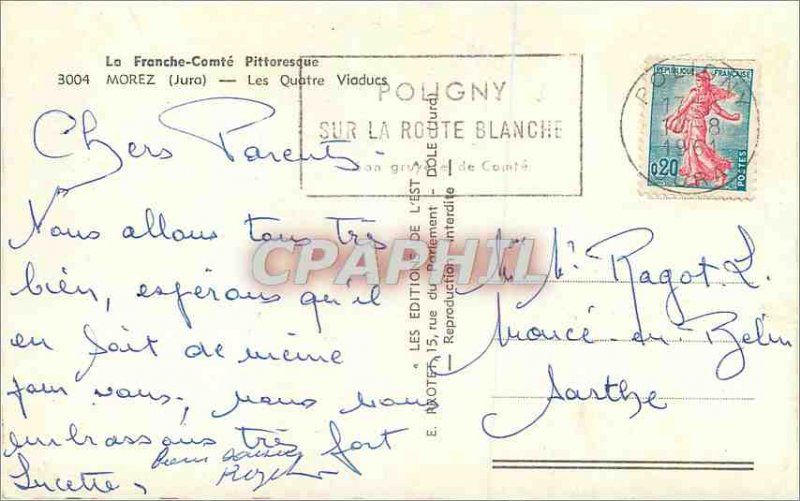 La Franche-Comté Pittoresque
3004 MOREZ (Jura) — Les Quatre Viaducs
POLIGNY
SUR LA ROUTE BLANCHE
son gruyère de Comté
POLIGNY
17
1961
JURA
REPUBLIQUE FRANÇAISE
0,20
POSTES
Chers Parents
Nous allons tous très
bien, espérons qu'il
en fait de même
pour vous, nous vous
embrassons très fort
Lucette,
bons baisers
« LES EDITIONS DE L'EST »
E. PROTET, 15, rue du Parlement - DOLE (Jura)
— Reproduction interdite —
CPAPHIL
Mr Ragot. L.
Moncé-en-Belin
Sarthe